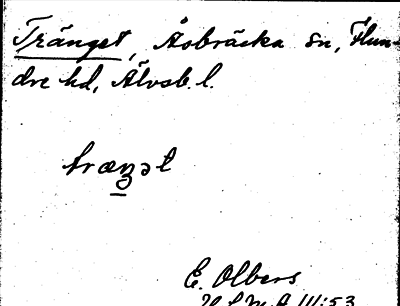 Tränget, Åsbräcka sn, Flun-
dre hd, Älvsb. l.
træŋət
E. Olbers